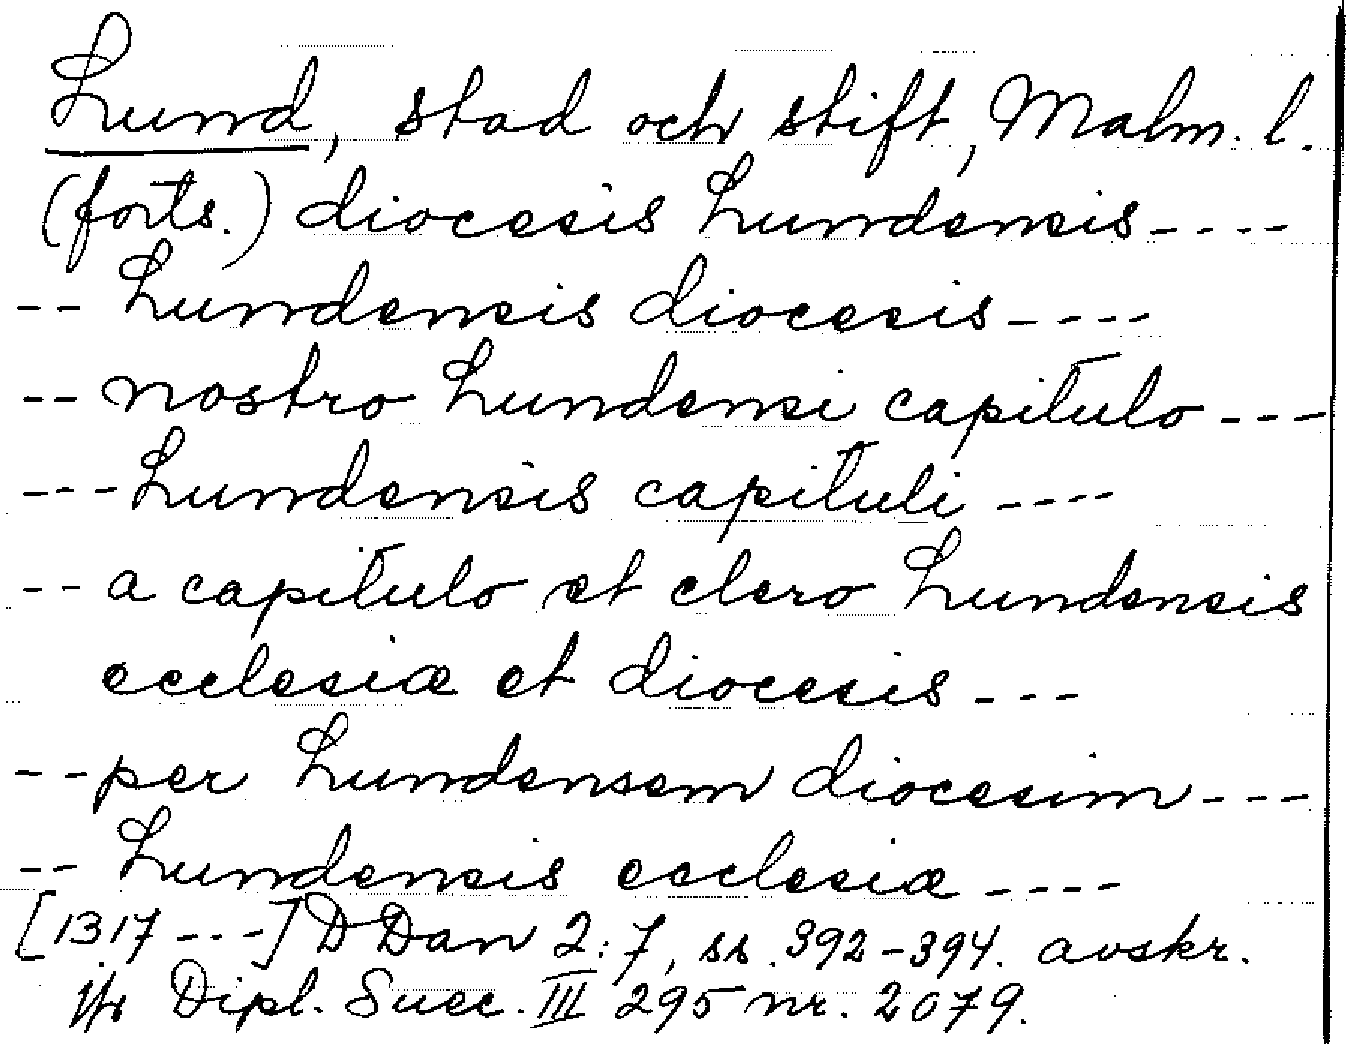 Lund, stad och stift, Malm. l.
(forts.) diocesis Lundensis ----
-- Lundensis diocesis ----
-- nostro Lundensi capitulo ---
--- Lundensis capituli ----
-- a capitulo et clero Lundensis
ecclesiæ et diocesis ---
-- per Lundensem diocesim ---
-- Lundensis ecclesiæ ----
[1317 ---] DDan 2:7, ss. 392-394. avskr.
jfr Dipl. Suec. III 295 nr. 2079.